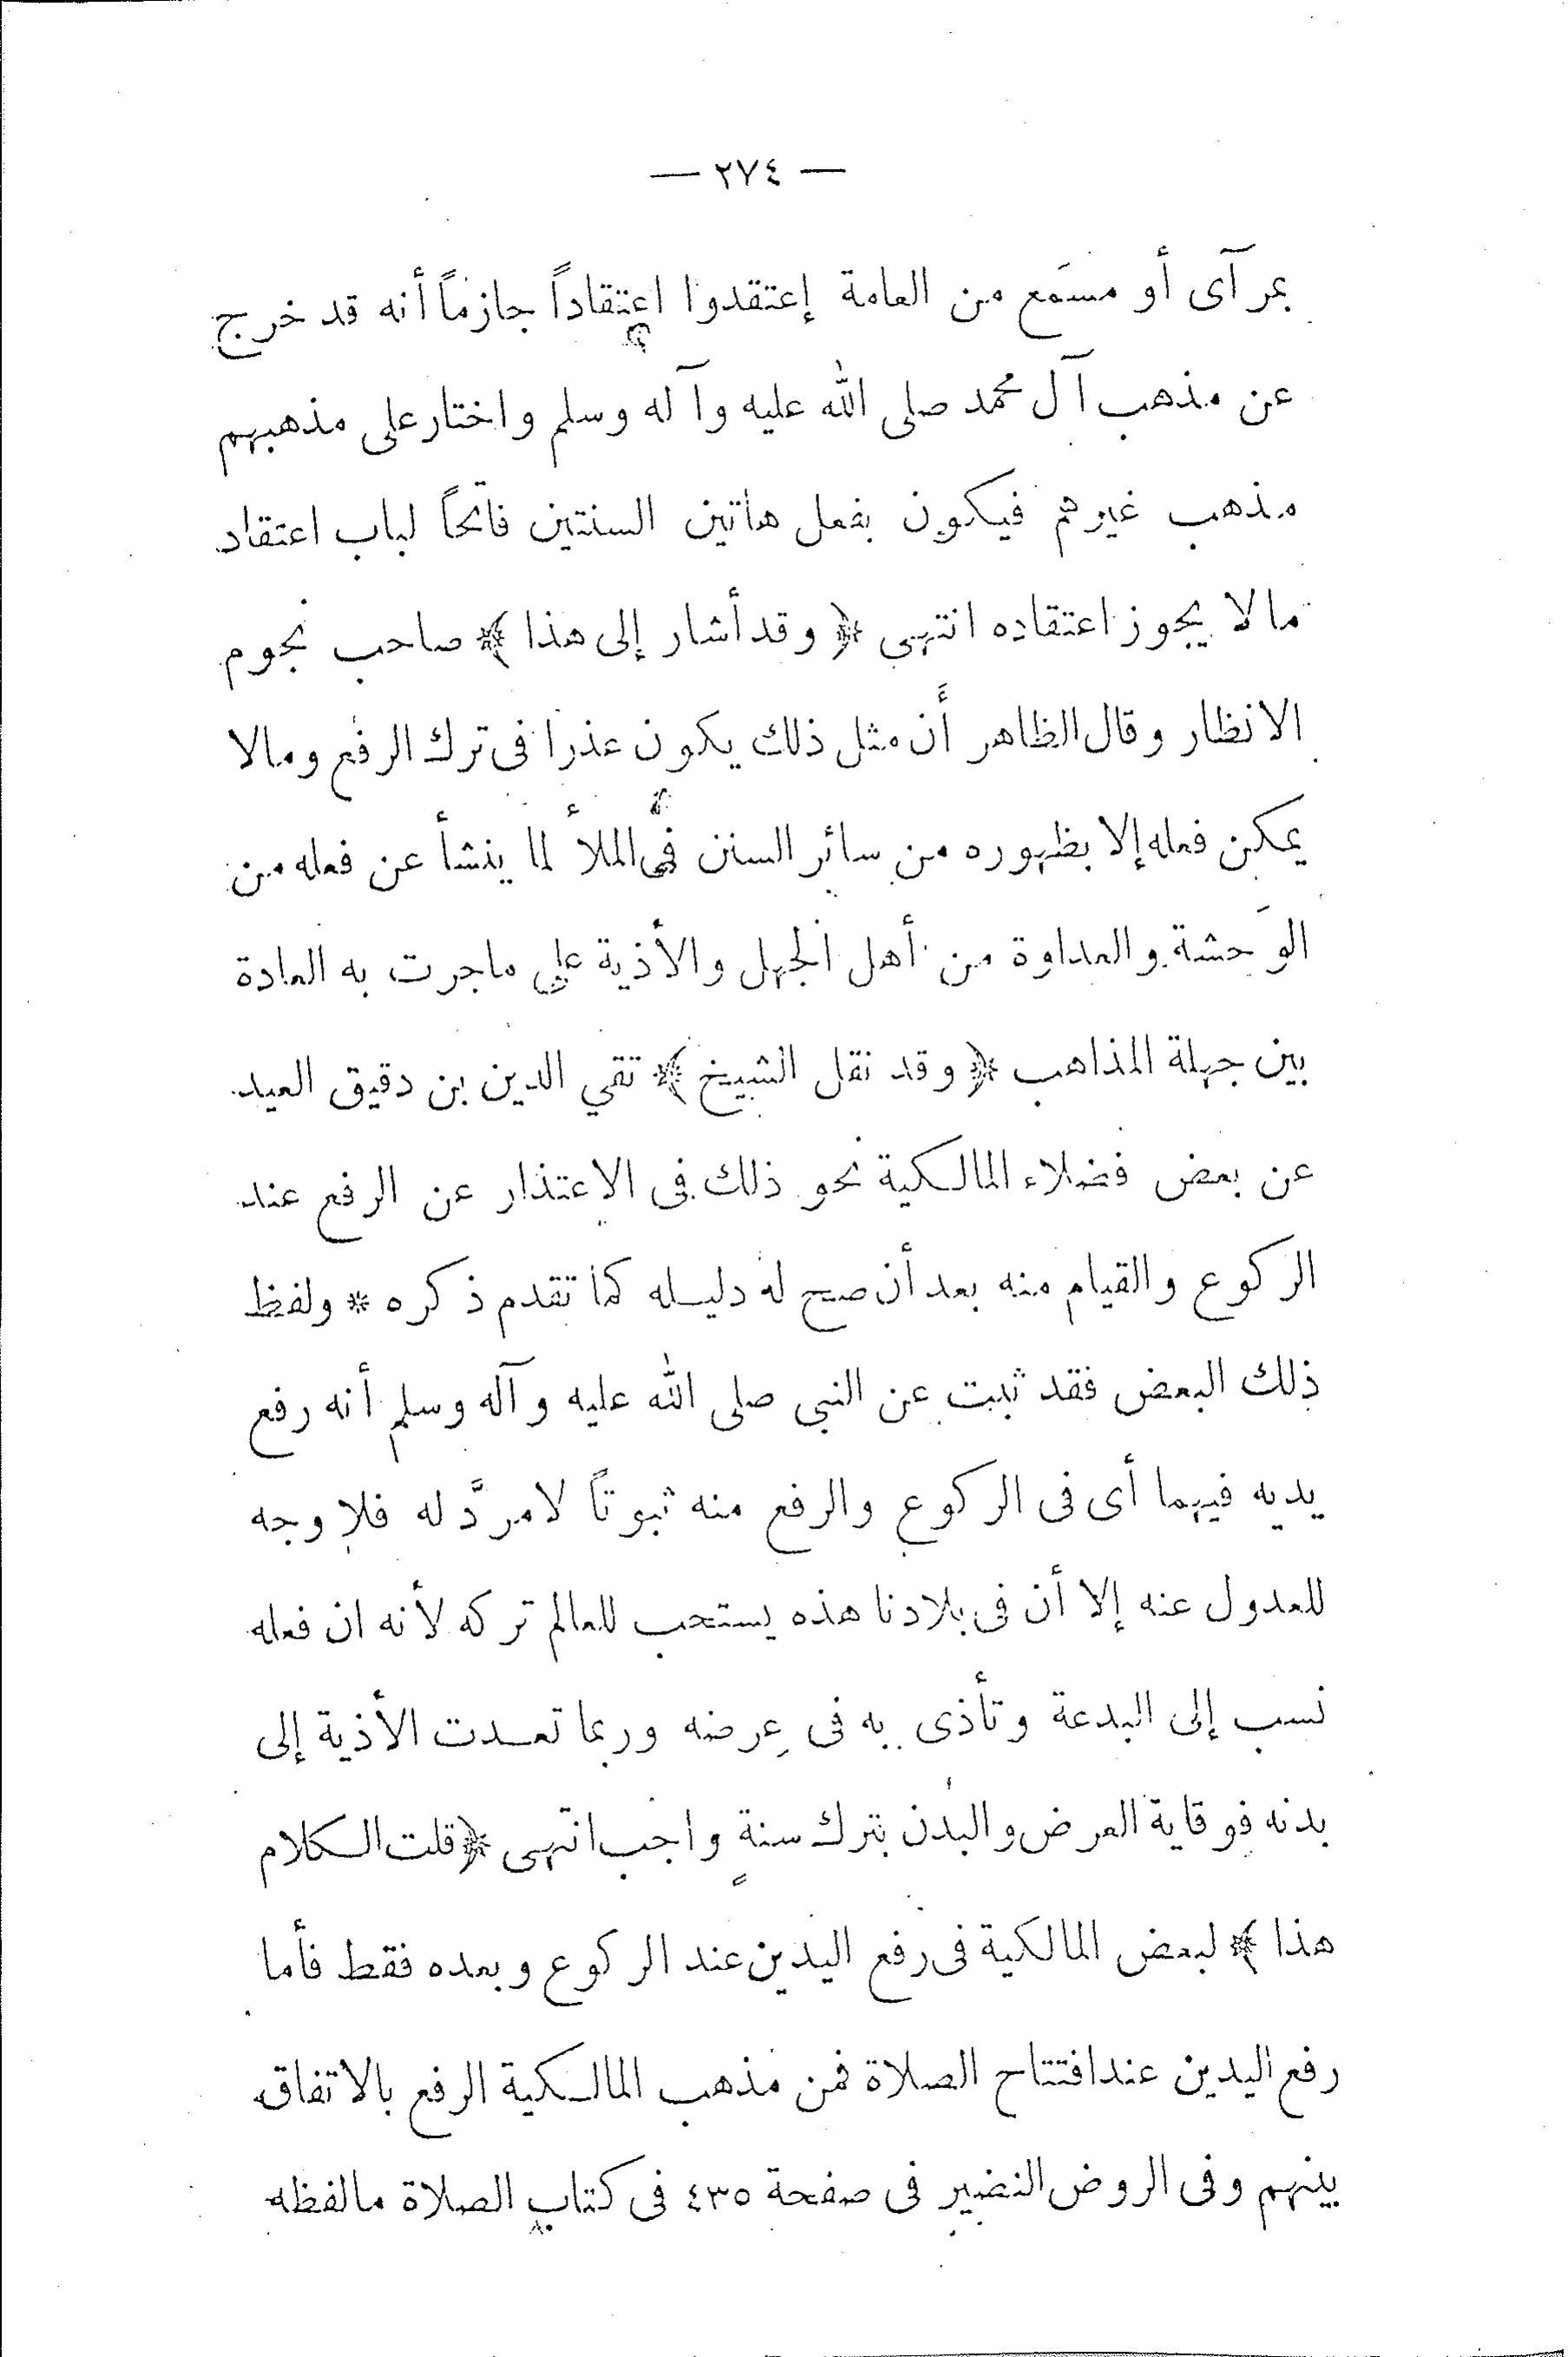 — ٢٧٤ —
بمرآى أو مسمَع من العامة إعتقدوا اعتقاداً جازماً أنه قد خرج
عن مذهب آل محمد صلى الله عليه وآله وسلم واختار على مذهبهم
مذهب غيرهم فيكون بفعل هاتين السنتين فاتحاً لباب اعتقاد
مالا يجوز اعتقاده انتهى ﴿ وقد أشار إلى هذا ﴾ صاحب نجوم
الانظار وقال الظاهر أَن مثل ذلك يكون عذرا فى ترك الرفع ومالا
يمكن فعله إلا بظهوره من سائر السنن فى الملأ لما ينشأ عن فعله من
الوَحشة والعداوة من أهل الجهل والأذية على ماجرت به العادة
بين جهلة المذاهب ﴿ وقد نقل الشيخ ﴾ تقي الدين بن دقيق العيد
عن بعض فضلاء المالكية نحو ذلك فى الاعتذار عن الرفع عند
الركوع والقيام منه بعد أن صح له دليله كما تقدم ذكره * ولفظ
ذلك البعض فقد ثبت عن النبى صلى الله عليه وآله وسلم أنه رفع
يديه فيهما أى فى الركوع والرفع منه ثبوتاً لامردَّ له فلا وجه
للعدول عنه إلا أن فى بلادنا هذه يستحب للعالم تركه لأنه ان فعله
نسب إلى البدعة وتأذى به فى عِرضه وربما تعدت الأذية إلى
بدنه فوقاية العرض والبدن بترك سنةٍ واجب انتهى ﴿ قلت الكلام
هذا ﴾ لبعض المالكية فى رفع اليدين عند الركوع وبعده فقط فأما
رفع اليدين عند افتتاح الصلاة فمن مذهب المالكية الرفع بالاتفاق
بينهم وفى الروض النضير فى صفحة ٤٣٥ فى كتاب الصلاة مالفظه